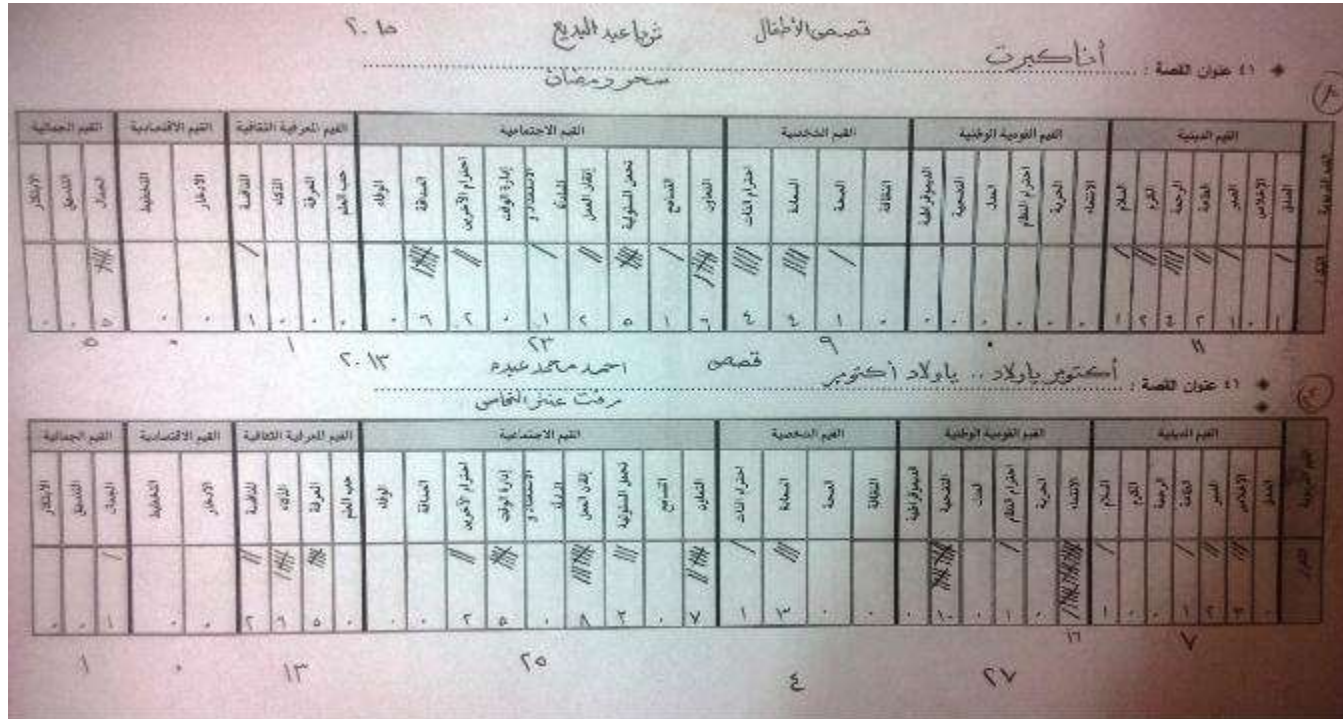 قصص الأطفال ثريا عبد البديع ٢٠١٥
٤١ عنوان القصة : أنا كبرت
سحر رمضان
القيم الدينية القيم القومية الوطنية القيم الشخصية القيم الاجتماعية القيم المعرفية الثقافية القيم الاقتصادية القيم الجمالية
الصدق الإخلاص الصبر الطاعة الرحمة الكرم السلام الانتماء الحرية احترام النظام العدل التضحية الديموقراطية النظافة الصحة السعادة احترام الذات التعاون التسامح تحمل المسئولية إتقان العمل إدارة الوقت احترام الآخرين الصداقة الوفاء حب العلم المعرفة الذكاء المنافسة الادخار التخطيط الجمال التذوق الابتكار
التكرار
١ ٠ ١ ٢ ٤ ٢ ١ ٠ ٠ ٠ ٠ ٠ ٠ ٠ ١ ٤ ٤ ٦ ١ ٥ ٢ ١ ٠ ٢ ٦ ٠ ٠ ٠ ٠ ١ ٠ ٠ ٥ ٠ ٠
١١ ٠ ٩ ٢٣ ١ ٠ ٥
قصص احمد محمد عبده ٢٠١٣
٤١ عنوان القصة : أكتوبر ياولاد .. ياولاد أكتوبر
مرفت عنتر النحاس
القيم الدينية القيم القومية الوطنية القيم الشخصية القيم الاجتماعية القيم المعرفية الثقافية القيم الاقتصادية القيم الجمالية
الصدق الإخلاص الصبر الطاعة الرحمة الكرم السلام الانتماء الحرية احترام النظام العدل التضحية الديموقراطية النظافة الصحة السعادة احترام الذات التعاون التسامح تحمل المسئولية إتقان العمل إدارة الوقت احترام الآخرين الصداقة الوفاء حب العلم المعرفة الذكاء المنافسة الادخار التخطيط الجمال التذوق الابتكار
التكرار
٠ ٣ ٢ ١ ٠ ٠ ١ ٠ ١ ٠ ١٠ ٠ ٠ ٠ ٣ ١ ٧ ٠ ٣ ٨ ٠ ٥ ٢ ٠ ٠ ٠ ٥ ٦ ٢ ٠ ٠ ١ ٠ ٠
١٦
٧ ٢٧ ٤ ٢٥ ١٣ ٠ ١